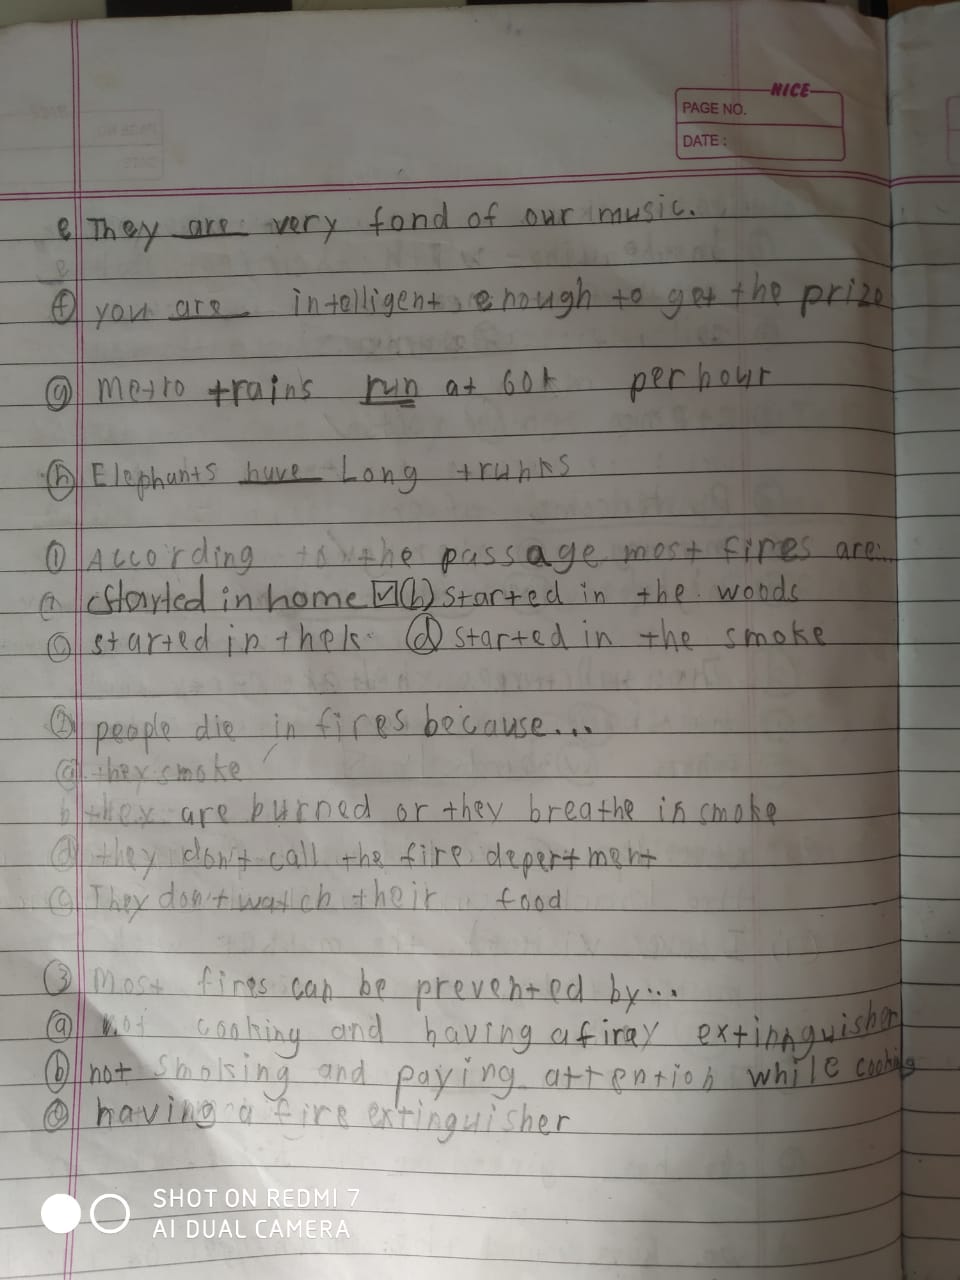 NICE
PAGE NO.
DATE :
e They are very fond of our music.
f you are intelligent enough to get the prize
g Metro trains run at 60k per hour
h Elephants have Long trunks
1 According to the passage most fires are...
a started in home ☑ (b) started in the woods
c started in the d started in the smoke
2 people die in fires because...
a they smoke
b they are burned or they breathe in smoke
d they don't call the fire depertment
c They don't watch their food
3 Most fires can be prevented by...
a not cooking and having a firay extinnguisher
b not smoking and paying attention while cooking
c having a fire extinguisher
SHOT ON REDMI 7
AI DUAL CAMERA